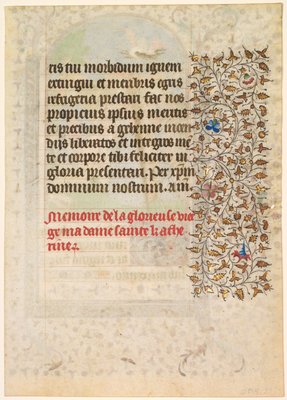 tis tui morbidum ignem
extingui et membris egris
refugeria prestari fac nos
propiciis ipsius meritis
et precibus a gehenne incen
dijs liberatos et integros me
te et corpore tibi feliciter in
gloria presentari. Per xpm
dominum nostrum.
Memoire de la glorieuse vier
ge ma dame sainte kathe
rine.